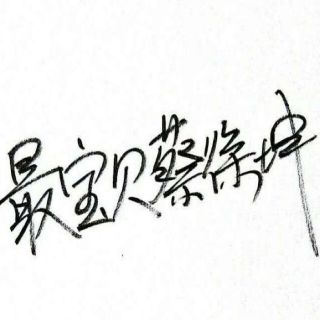 最宝贝蔡徐坤